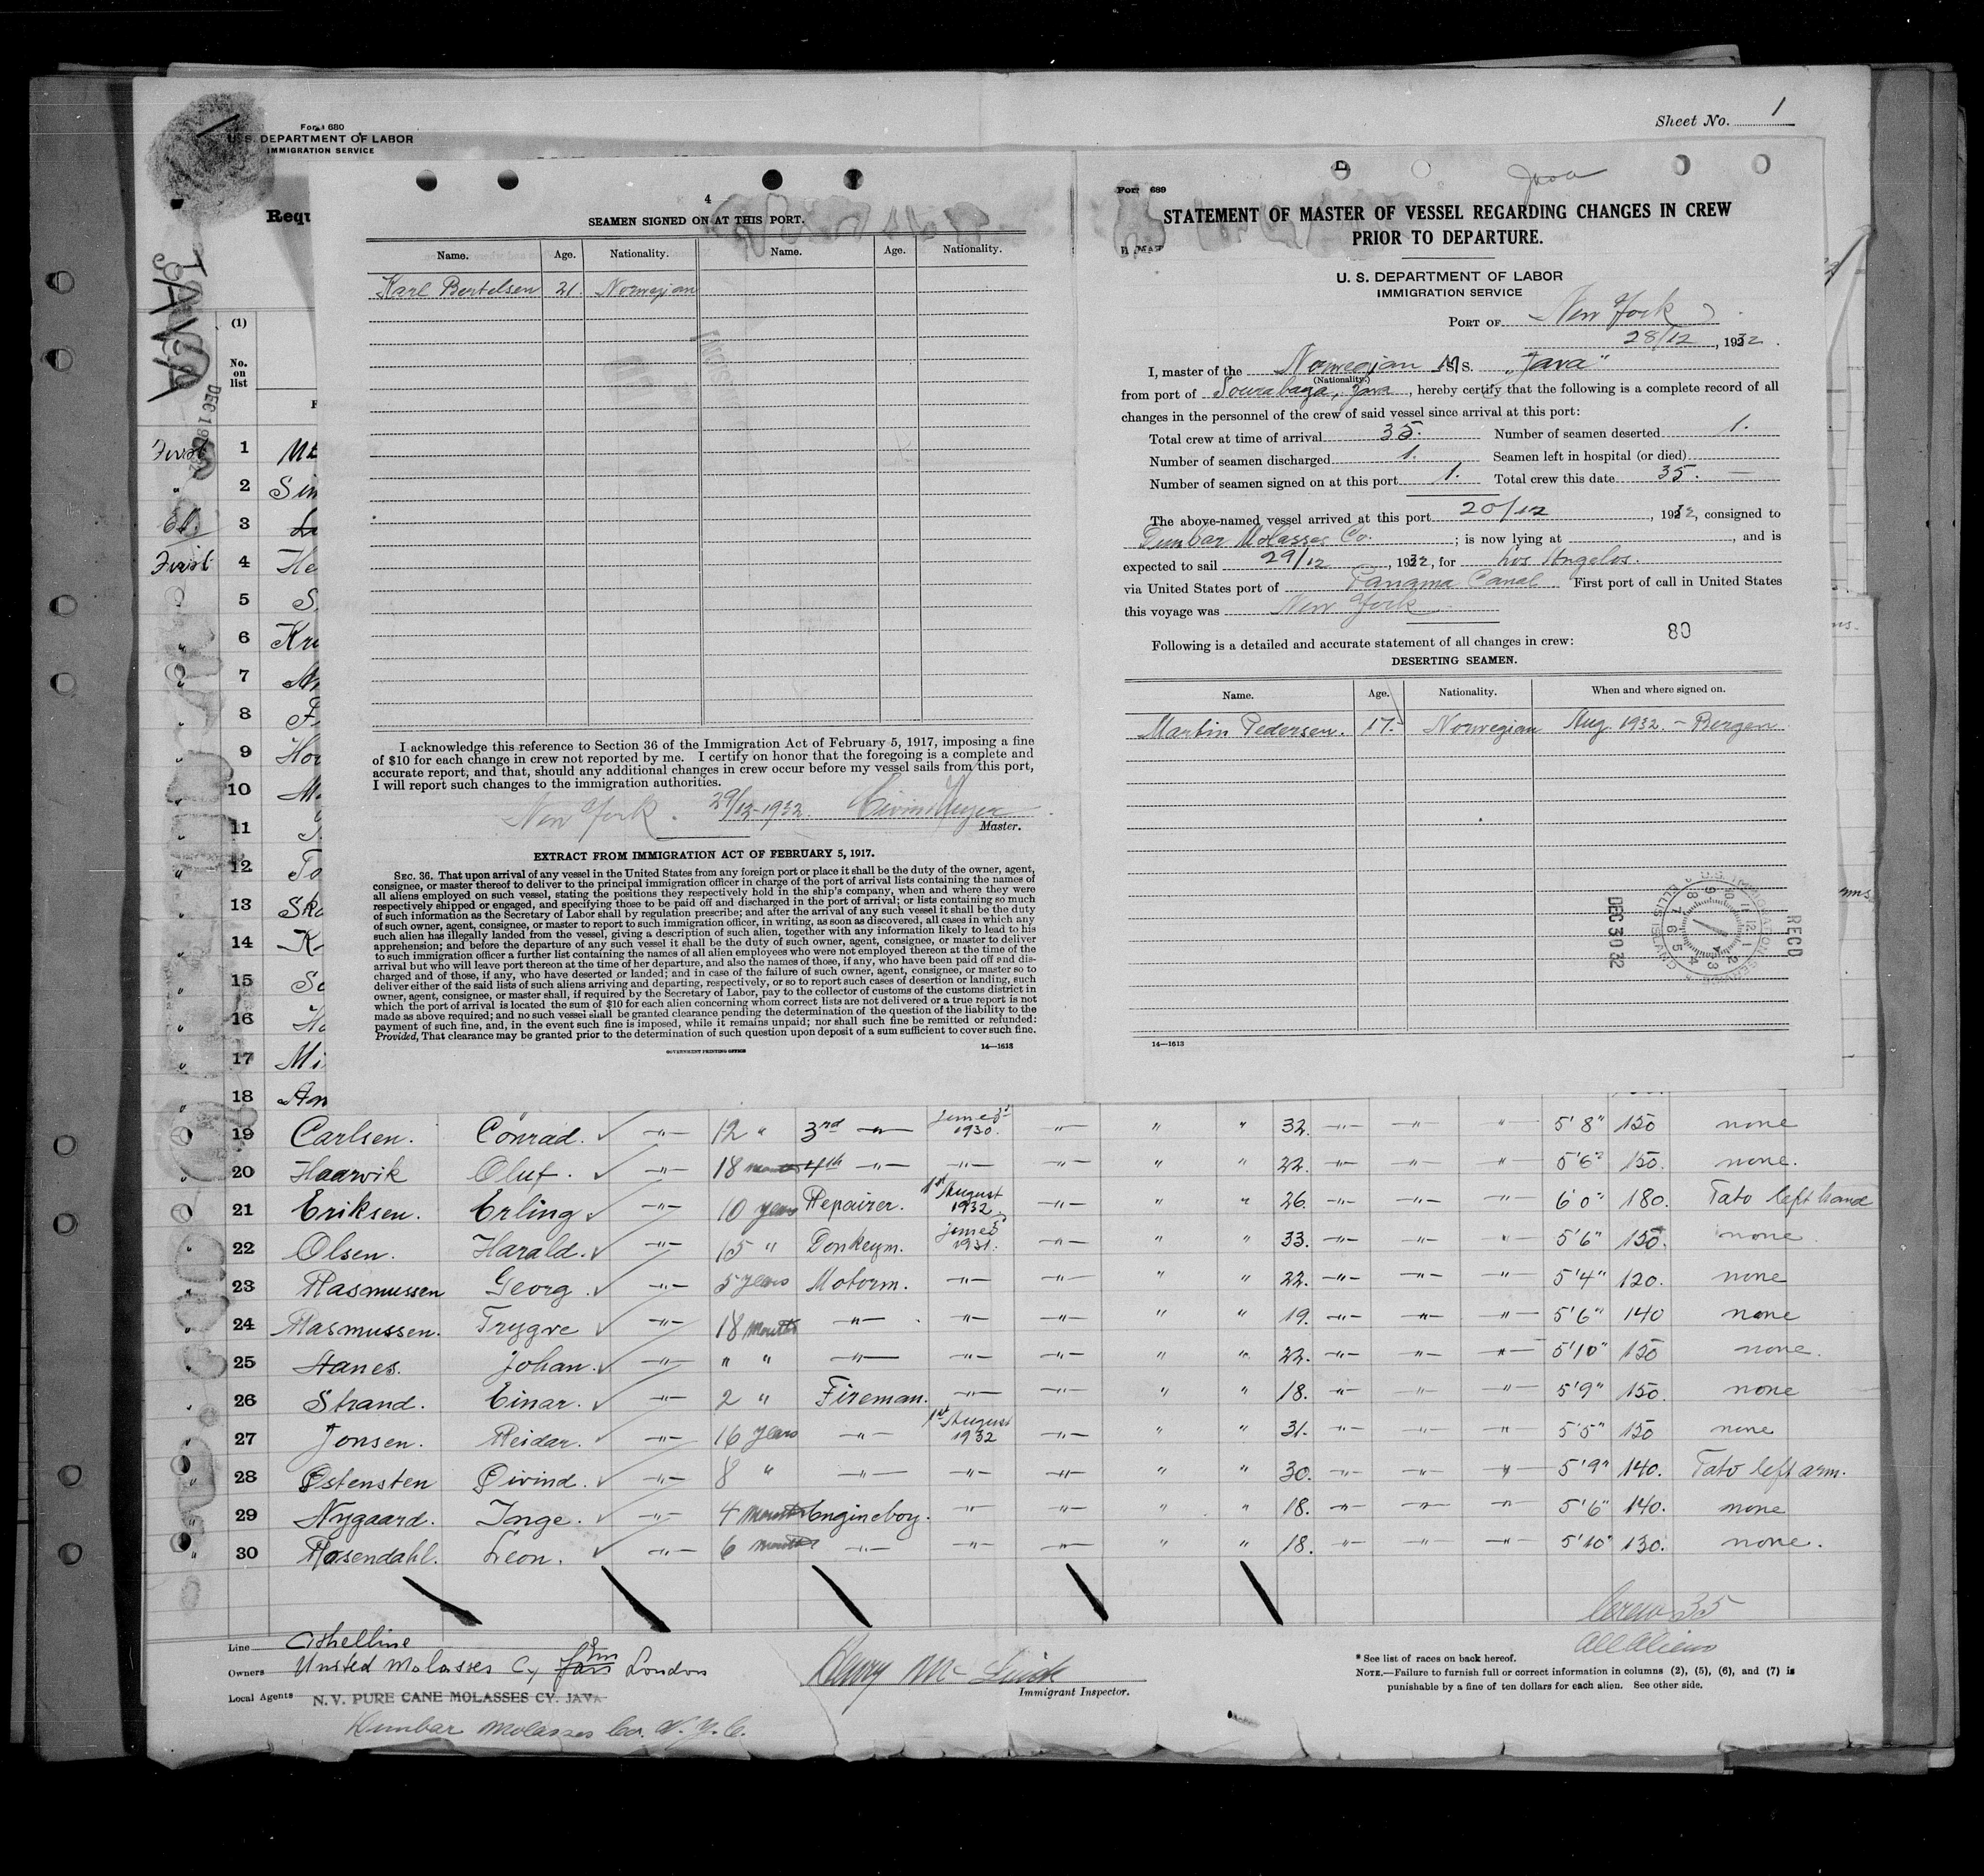 Sheet No. 1
Form 680
U. S. DEPARTMENT OF LABOR
IMMIGRATION SERVICE
JAVA
(1)
No. on list
4
SEAMEN SIGNED ON AT THIS PORT.
Name. Age. Nationality. Name. Age. Nationality.
Karl Bertelsen 21. Norwegian
I acknowledge this reference to Section 36 of the Immigration Act of February 5, 1917, imposing a fine
of $10 for each change in crew not reported by me. I certify on honor that the foregoing is a complete and
accurate report, and that, should any additional changes in crew occur before my vessel sails from this port,
I will report such changes to the immigration authorities.
New York. 29/12-1932.
Master.
EXTRACT FROM IMMIGRATION ACT OF FEBRUARY 5, 1917.
SEC. 36. That upon arrival of any vessel in the United States from any foreign port or place it shall be the duty of the owner, agent,
consignee, or master thereof to deliver to the principal immigration officer in charge of the port of arrival lists containing the names of
all aliens employed on such vessel, stating the positions they respectively hold in the ship's company, when and where they were
respectively shipped or engaged, and specifying those to be paid off and discharged in the port of arrival; or lists containing so much
of such information as the Secretary of Labor shall by regulation prescribe; and after the arrival of any such vessel it shall be the duty
of such owner, agent, consignee, or master to report to such immigration officer, in writing, as soon as discovered, all cases in which any
such alien has illegally landed from the vessel, giving a description of such alien, together with any information likely to lead to his
apprehension; and before the departure of any such vessel it shall be the duty of such owner, agent, consignee, or master to deliver
to such immigration officer a further list containing the names of all alien employees who were not employed thereon at the time of the
arrival but who will leave port thereon at the time of her departure, and also the names of those, if any, who have been paid off and dis-
charged and of those, if any, who have deserted or landed; and in case of the failure of such owner, agent, consignee, or master so to
deliver either of the said lists of such aliens arriving and departing, respectively, or so to report such cases of desertion or landing, such
owner, agent, consignee, or master shall, if required by the Secretary of Labor, pay to the collector of customs of the customs district in
which the port of arrival is located the sum of $10 for each alien concerning whom correct lists are not delivered or a true report is not
made as above required; and no such vessel shall be granted clearance pending the determination of the question of the liability to the
payment of such fine, and, in the event such fine is imposed, while it remains unpaid; nor shall such fine be remitted or refunded:
Provided, That clearance may be granted prior to the determination of such question upon deposit of a sum sufficient to cover such fine.
GOVERNMENT PRINTING OFFICE 14—1613
Java
Form 689
STATEMENT OF MASTER OF VESSEL REGARDING CHANGES IN CREW
PRIOR TO DEPARTURE.
U. S. DEPARTMENT OF LABOR
IMMIGRATION SERVICE
PORT OF New York
28/12, 1932.
I, master of the Norwegian M/S. "Java"
(Nationality.)
from port of Sourabaya, Java, hereby certify that the following is a complete record of all
changes in the personnel of the crew of said vessel since arrival at this port:
Total crew at time of arrival 35. Number of seamen deserted 1.
Number of seamen discharged 1. Seamen left in hospital (or died)
Number of seamen signed on at this port 1. Total crew this date 35. —
The above-named vessel arrived at this port 20/12, 1932, consigned to
Dunbar Molasses Co. ; is now lying at , and is
expected to sail 29/12, 1932, for Los Angelos.
via United States port of Panama Canal First port of call in United States
this voyage was New York
80
Following is a detailed and accurate statement of all changes in crew:
DESERTING SEAMEN.
Name. Age. Nationality. When and where signed on.
Martin Pedersen. 17. Norwegian Aug 1932 - Bergen
RECD
DEC 30 32
14—1613
First 1
" 2 Sin
3
First 4 He
5 S
" 6 Kri
" 7
" 8 F
" 9 Hov
" 10 M
" 11
" 12 To
" 13 Ska
" 14 K
" 15 So
" 16 Ha
" 17 Mi
" 18
19 Carlsen. Conrad. ✓ -"- 12 " 3rd -"- 1930. -"- " " 32. -"- -"- " 5'8" 150 none
20 Haarvik Oluf. ✓ -"- 18 months 4th -"- -"- -"- " " 22. -"- -"- -"- 5'6" 150. none.
21 Eriksen. Erling ✓ -"- 10 years Repairer. 1st August 1932. -"- " " 26. -"- -"- -"- 6'0" 180. Tato left hand
22 Olsen. Harald. ✓ -"- 15 " Donkeym. 1931. -"- " " 33. -"- -"- -"- 5'6" 150. none
23 Rasmussen Georg. ✓ -"- 5 years Motorm. -"- -"- " " 22. -"- -"- -"- 5'4" 120. none
24 Rasmussen. Trygve ✓ -"- 18 months -"- -"- -"- " " 19. -"- -"- -"- 5'6" 140 none
25 Hanes. Johan. ✓ -"- " " -"- -"- -"- " " 22. -"- -"- -"- 5'10" 150 none.
26 Strand. Einar. ✓ -"- 2 " Fireman. -"- -"- " " 18. -"- -"- -"- 5'9" 150. none
27 Jonsen. Reidar. ✓ -"- 16 years -"- 1st August 1932 -"- " " 31. -"- -"- -"- 5'5" 150 none
28 Østensten Øivind. ✓ -"- 8 " -"- -"- -"- " " 30. -"- -"- -"- 5'9" 140. Tato left arm.
29 Nygaard. Inge. ✓ -"- 4 months Engineboy. -"- -"- " " 18. -"- -"- -"- 5'6" 140. none
30 Rosendahl. Leon. ✓ -"- 6 months -"- -"- -"- " " 18. -"- -"- -"- 5'10" 130. none.
Crew 35
All Aliens
Line Athelline
Owners United Molasses Cy London
Local Agents N. V. PURE CANE MOLASSES CY. JAVA
Dunbar Molasses Co. N. Y. C.
Immigrant Inspector.
* See list of races on back hereof.
NOTE.—Failure to furnish full or correct information in columns (2), (5), (6), and (7) is
punishable by a fine of ten dollars for each alien. See other side.